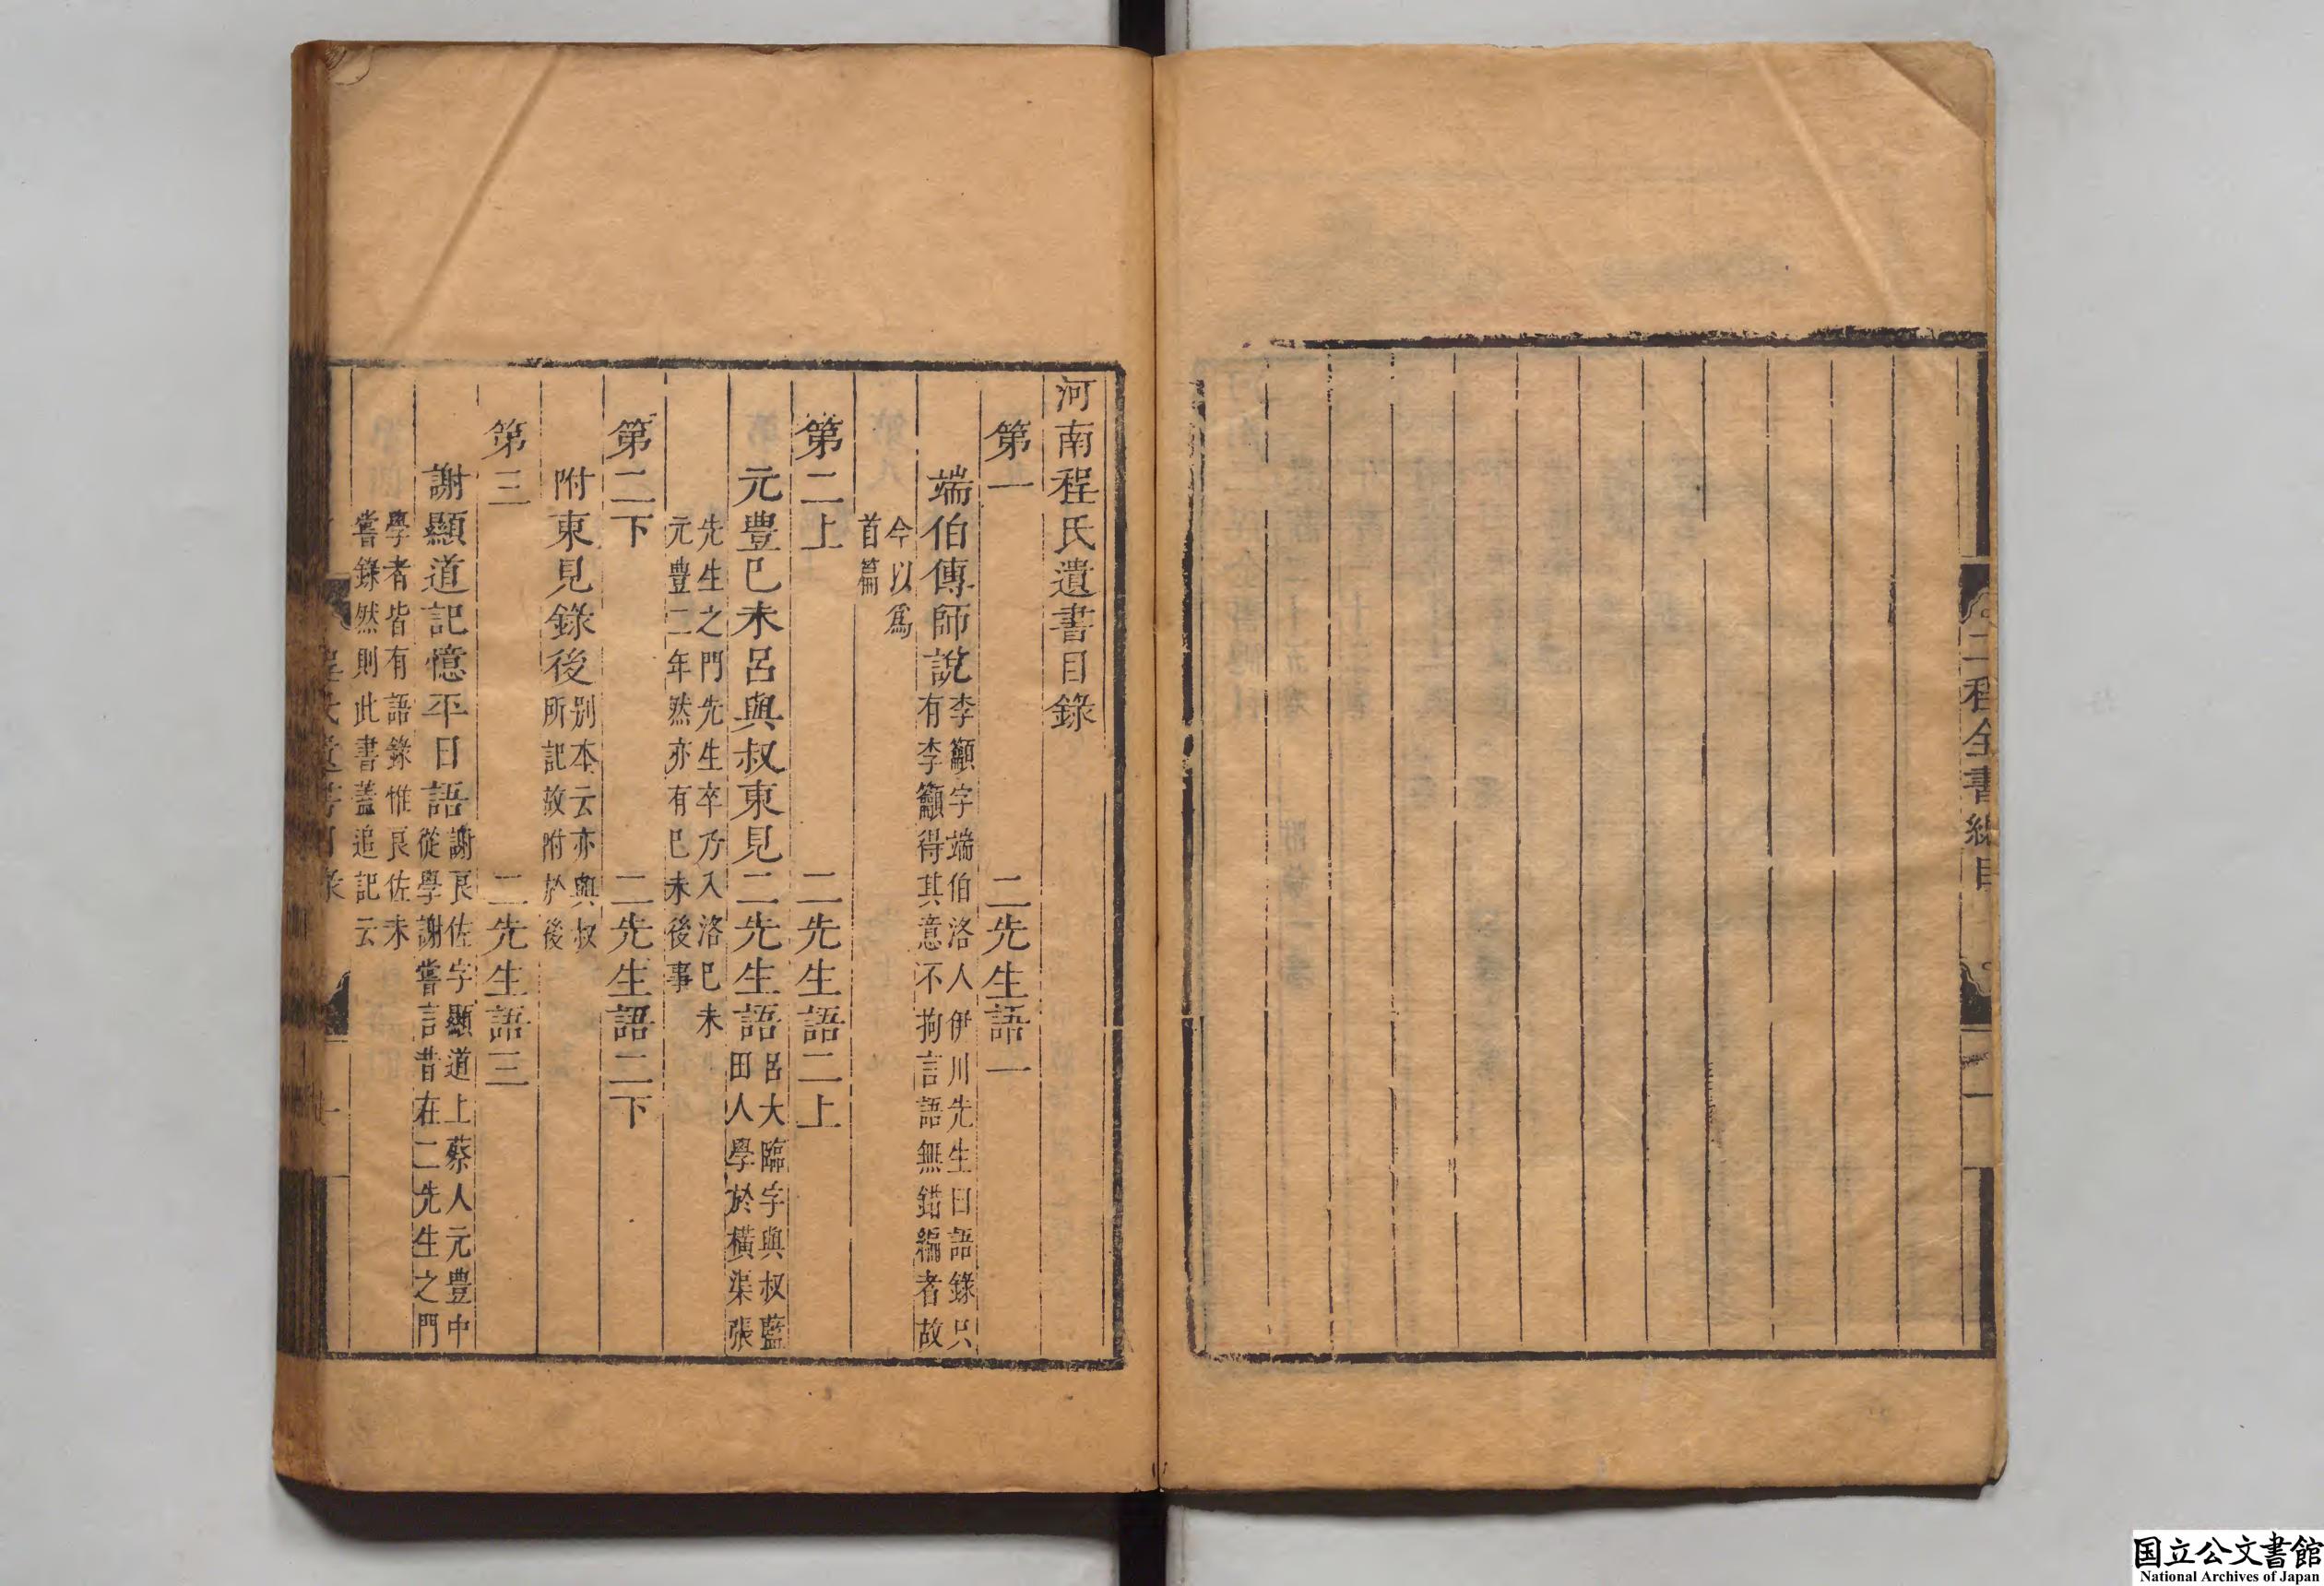 二程全書總目
二
河南程氏遺書目錄
第一 二先生語一
端伯傳師說
李籲字端伯洛人伊川先生曰語錄只
有李籲得其意不拘言語無錯編者故
今以為
首篇
第二上 二先生語二上
元豐巳未呂與叔東見二先生語
呂大臨字與叔藍
田人學於橫渠張
先生之門先生卒乃入洛巳未
元豐二年然亦有巳未後事
第二下 二先生語二下
附東見錄後
別本云亦與叔
所記故附於後
第三 二先生語三
謝顯道記憶平日語
謝良佐字顯道上蔡人元豐中
從學謝嘗言昔在二先生之門
學者皆有語錄惟良佐未
嘗錄然則此書蓋追記云
程氏遺書目錄
一
国立公文書館
National Archives of Japan